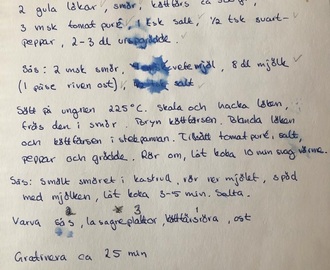 2 gula lökar, smör, köttfärs ca
3 msk tomat puré, 1 tsk salt, 1/2 tsk svart-
peppar, 2-3 dl
Sås: 2 msk smör, vetemjöl, 8 dl mjölk
(1 påse riven ost), salt
Sätt på ungnen 225°C. Skala och hacka löken,
fräs den i smör. Bryn köttfärsen. Blanda löken
och köttfärsen i stekpannan. Tillsätt tomatpuré, salt,
peppar och grädde. Rör om, låt koka 10 min svag värme.
Sås: Smält smöret i kastrull, rör ner mjölet, späd
med mjölken, låt koka 3-5 min. Salta.
2 3 1
Varva sås, lasagneplattor, köttfärsröra, ost
Gratinera ca 25 min